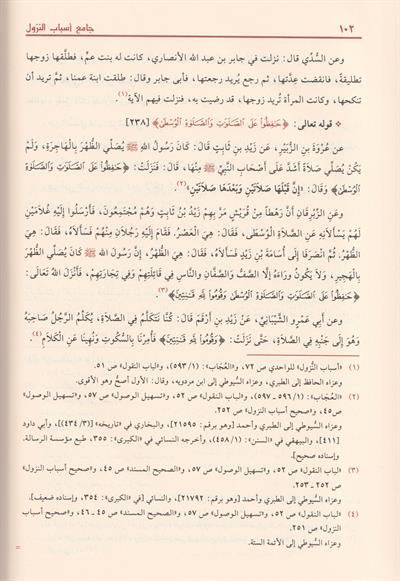 ١٠٢ جامع أسباب النزول
وعن السُّدِّي قال: نزلت في جابر بن عبد الله الأنصاري، كانت له بنت عمٍّ، فطلَّقها زوجها
تطليقةً، فانقضت عِدَّتها، ثم رجع يُريد رجعتها، فأبى جابر وقال: طلقت ابنة عمنا، ثمَّ تريد أن
تنكحها، وكانت المرأة تُريد زوجها، قد رضيت به، فنزلت فيهم الآية(١).
* قوله تعالى: ﴿حَٰفِظُوا۟ عَلَى ٱلصَّلَوَٰتِ وَٱلصَّلَوٰةِ ٱلْوُسْطَىٰ﴾ [٢٣٨]
عن عُرْوَةَ بنِ الزُّبَيْرِ، عَنْ زَيْدِ بنِ ثَابِتٍ قَالَ: كَانَ رَسُولُ اللهِ ﷺ يُصَلِّي الظُّهْرَ بِالْهَاجِرَةِ، وَلَمْ
يَكُنْ يُصَلِّي صَلَاةً أَشَدَّ عَلَى أَصْحَابِ النَّبِيِّ ﷺ مِنْهَا، قَالَ: فَنَزَلَتْ: ﴿حَٰفِظُوا۟ عَلَى ٱلصَّلَوَٰتِ وَٱلصَّلَوٰةِ
ٱلْوُسْطَىٰ﴾ وَقَالَ: «إِنَّ قَبْلَهَا صَلَاتَيْنِ وَبَعْدَهَا صَلَاتَيْنِ»(٢).
عَنِ الزِّبْرِقَانِ أَنَّ رَهْطاً مِنْ قُرَيْشٍ مَرَّ بِهِمْ زَيْدُ بْنُ ثَابِتٍ وَهُمْ مُجْتَمِعُونَ، فَأَرْسَلُوا إِلَيْهِ غُلَامَيْنِ
لَهُمْ يَسْأَلَانِهِ عَنِ الصَّلَاةِ الْوُسْطَى، فَقَالَ: هِيَ الْعَصْرُ. فَقَامَ إِلَيْهِ رَجُلَانِ مِنْهُمْ فَسَأَلَاهُ، فَقَالَ:
هِيَ الظُّهْرُ. ثُمَّ انْصَرَفَا إِلَى أُسَامَةَ بْنِ زَيْدٍ فَسَأَلَاهُ، فَقَالَ: هِيَ الظُّهْرُ، إِنَّ رَسُولَ اللهِ ﷺ كَانَ يُصَلِّي الظُّهْرَ
بِالْهَجِيرِ، وَلَا يَكُونُ وَرَاءَهُ إِلَّا الصَّفُّ وَالصَّفَّانِ وَالنَّاسُ فِي قَائِلَتِهِمْ وَفِي تِجَارَتِهِمْ، فَأَنْزَلَ اللهُ تَعَالَى:
﴿حَٰفِظُوا۟ عَلَى ٱلصَّلَوَٰتِ وَٱلصَّلَوٰةِ ٱلْوُسْطَىٰ وَقُومُوا۟ لِلَّهِ قَٰنِتِينَ﴾(٣)
وعن أبي عَمرو الشَّيْبَانِي، عَنْ زَيْدِ بنِ أَرْقَمَ قَالَ: كُنَّا نَتَكَلَّمُ فِي الصَّلَاةِ، يُكَلِّمُ الرَّجُلُ صَاحِبَهُ
وَهُوَ إِلَى جَنْبِهِ فِي الصَّلَاةِ، حَتَّى نَزَلَتْ: ﴿وَقُومُوا۟ لِلَّهِ قَٰنِتِينَ﴾ فَأُمِرْنَا بِالسُّكُوتِ وَنُهِينَا عَنِ الْكَلَامِ(٤).
(١) «أسباب النُّزول» للواحدي ص ٧٢، و«العُجَاب»: (١/ ٥٩٣)، و«لباب النقول» ص ٥١.
وعزاه الحافظ إلى الطبري، وعزاه السُّيوطي إلى ابن مردويه، وقال: الأول أصحُّ وهو الأقوى.
(٢) «العُجَاب»: (١/ ٥٩٦ - ٥٩٧)، و«لباب النقول» ص ٥٢، و«تسهيل الوصول» ص ٥٧، و«تسهيل الوصول» ص ٥٧، و«الصحيح المسند»
ص ٤٥، و«صحيح أسباب النزول» ص ٢٥٢.
وعزاه السُّيوطي إلى أحمد [وهو برقم: ٢١٥٩٥]، والبخاري في «تاريخه» [(٣/ ٤٣٤)]، وأبي داود
[٤١١]، والبيهقي في «السنن»: (١/ ٤٥٨)، وأخرجه النسائي في «الكبرى»: ٣٥٥، طبع مؤسسة الرسالة.
وإسناده صحيح].
(٣) «لباب النقول» ص ٥٢، و«تسهيل الوصول» ص ٥٧، و«الصحيح المسند» ص ٤٥، و«صحيح أسباب النزول»
ص ٢٥٢ - ٢٥٣.
وعزاه السُّيوطي إلى الطبري وأحمد [وهو برقم: ٢١٧٩٢]، والنسائي [في «الكبرى»: ٣٥٤، وإسناده ضعيف].
(٤) «لباب النقول» ص ٥٢، و«تسهيل الوصول» ص ٥٧، و«الصحيح المسند» ص ٤٥ - ٤٦، و«صحيح أسباب
النزول» ص ٢٥١.
وعزاه السُّيوطي إلى الأئمة الستة.
=